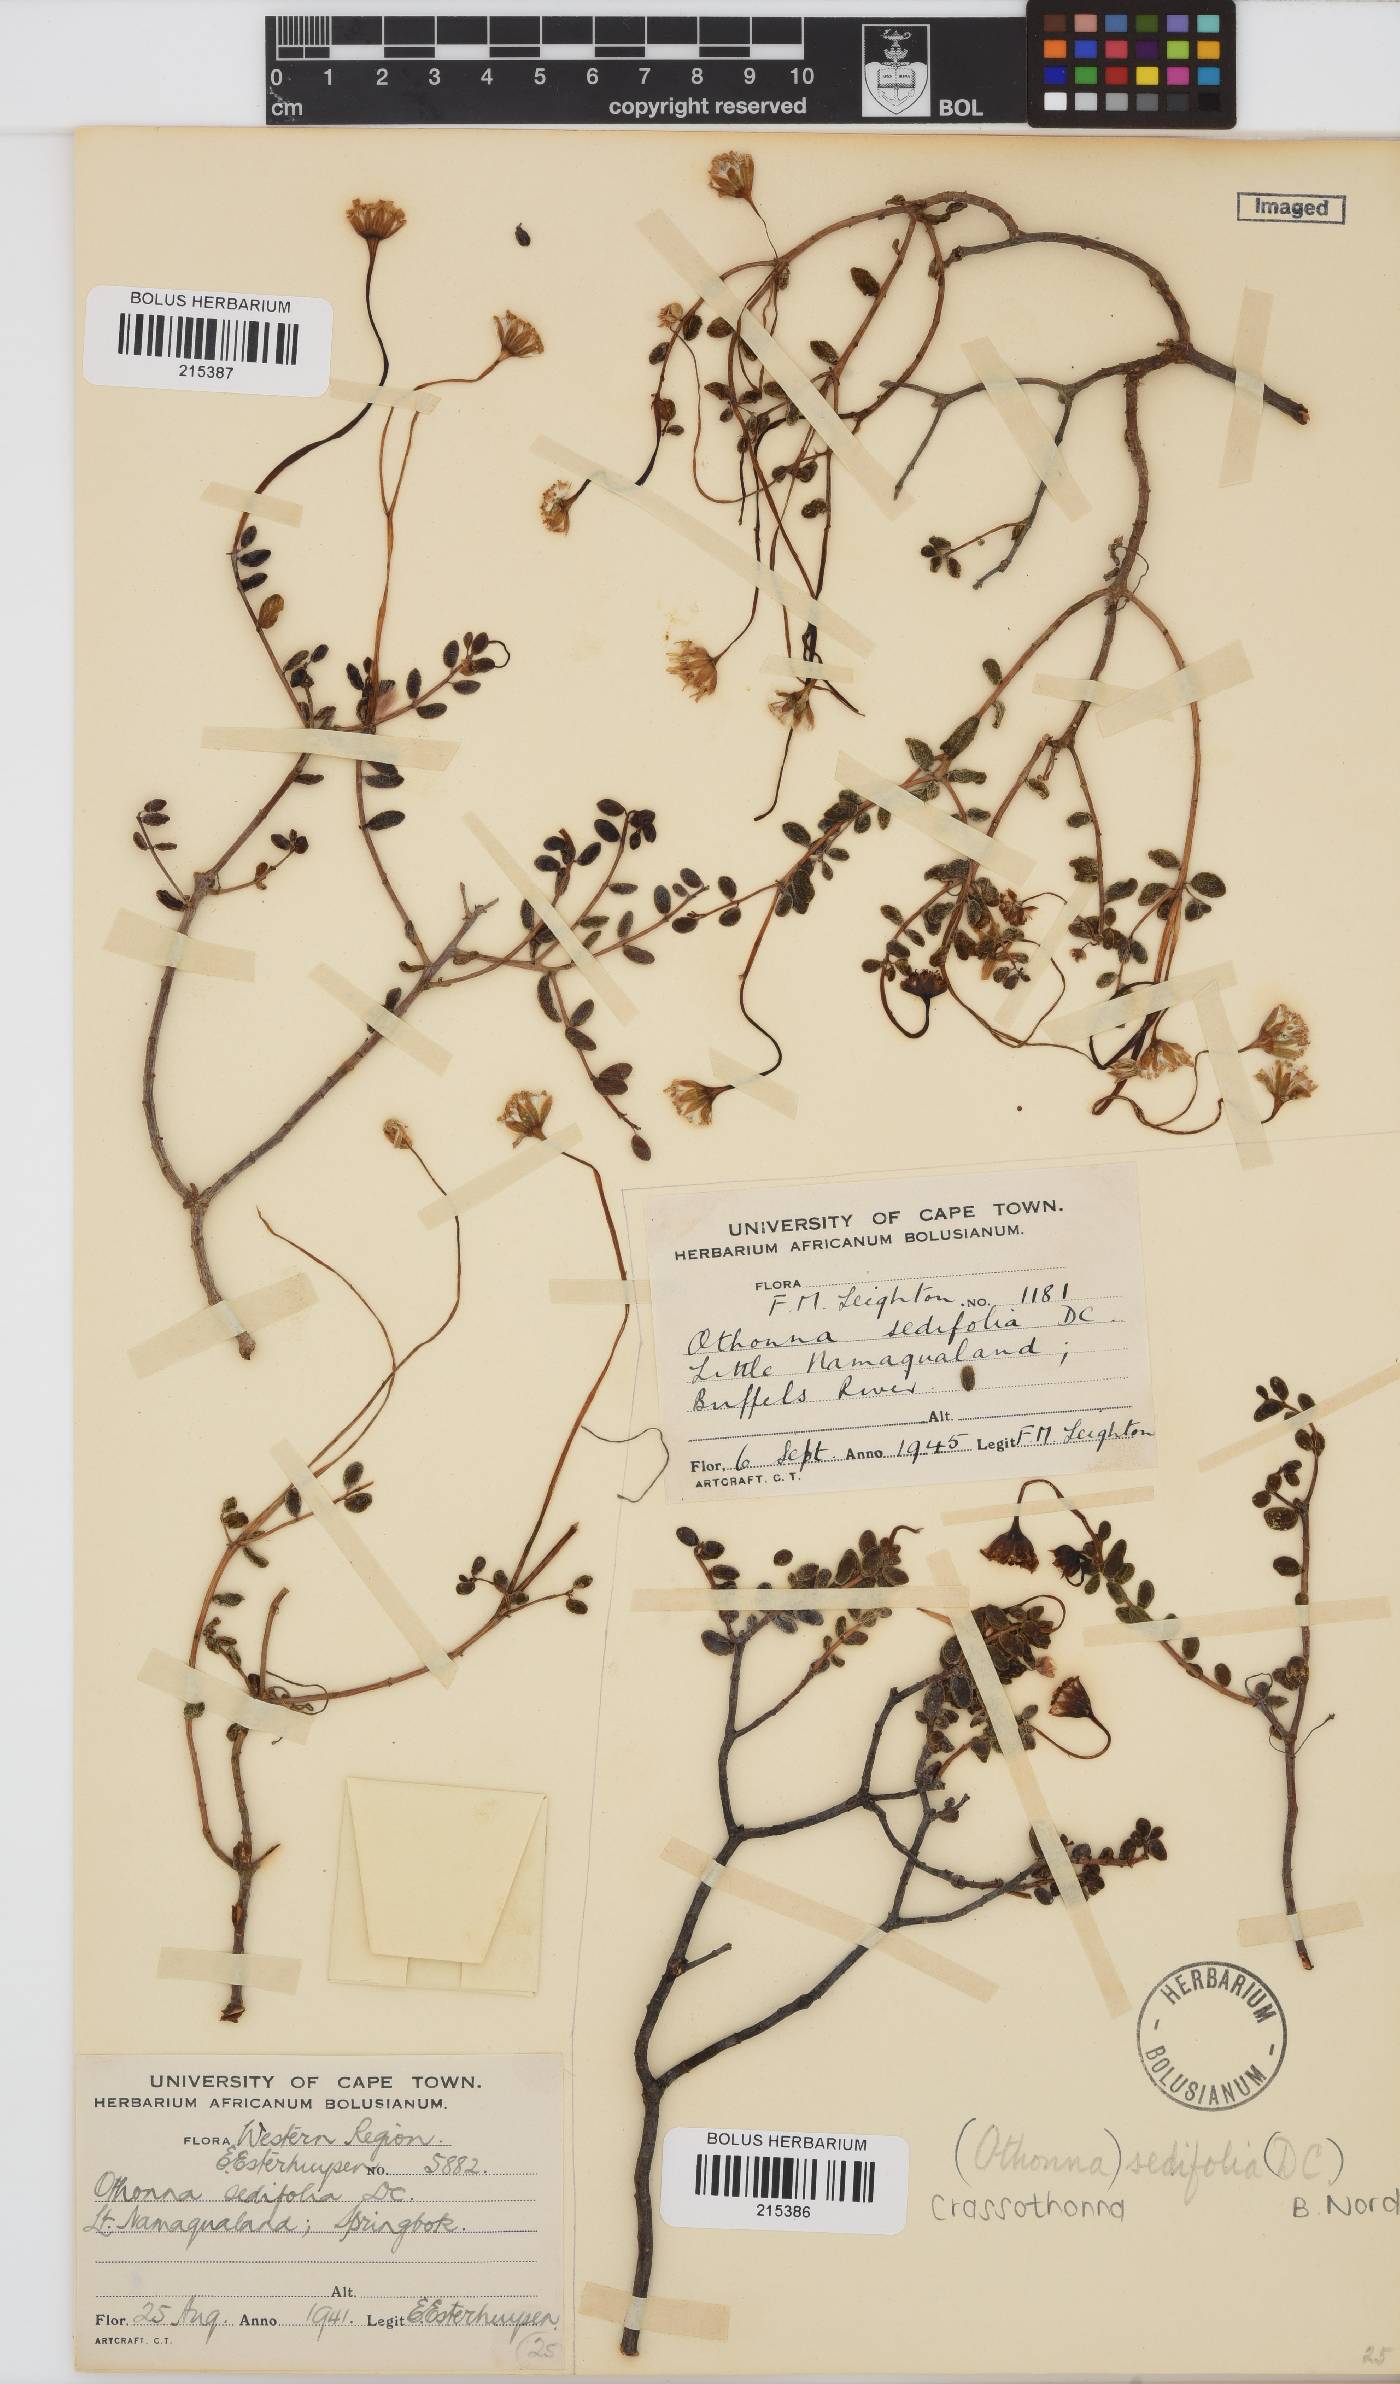 0 1 2 3 4 5 6 7 8 9 10
cm copyright reserved BOL
Imaged
BOLUS HERBARIUM
215387
UNIVERSITY OF CAPE TOWN.
HERBARIUM AFRICANUM BOLUSIANUM.
FLORA
F. M. Leighton. NO. 1181
Othonna sedifolia DC.
Little Namaqualand;
Buffels River.
Alt.
Flor. 6 Sept. Anno 1945 Legit F M Leighton
ARTCRAFT. C. T.
HERBARIUM
BOLUSIANUM
UNIVERSITY OF CAPE TOWN.
HERBARIUM AFRICANUM BOLUSIANUM.
FLORA Western Region.
E. Esterhuysen NO. 5882.
Othonna sedifolia DC.
Lt. Namaqualand; Springbok.
Alt.
Flor. 25 Aug. Anno 1941. Legit E. Esterhuysen.
ARTCRAFT. C.T.
(25)
BOLUS HERBARIUM
215386
(Othonna) sedifolia (DC.)
Crassothonna B. Nord
25